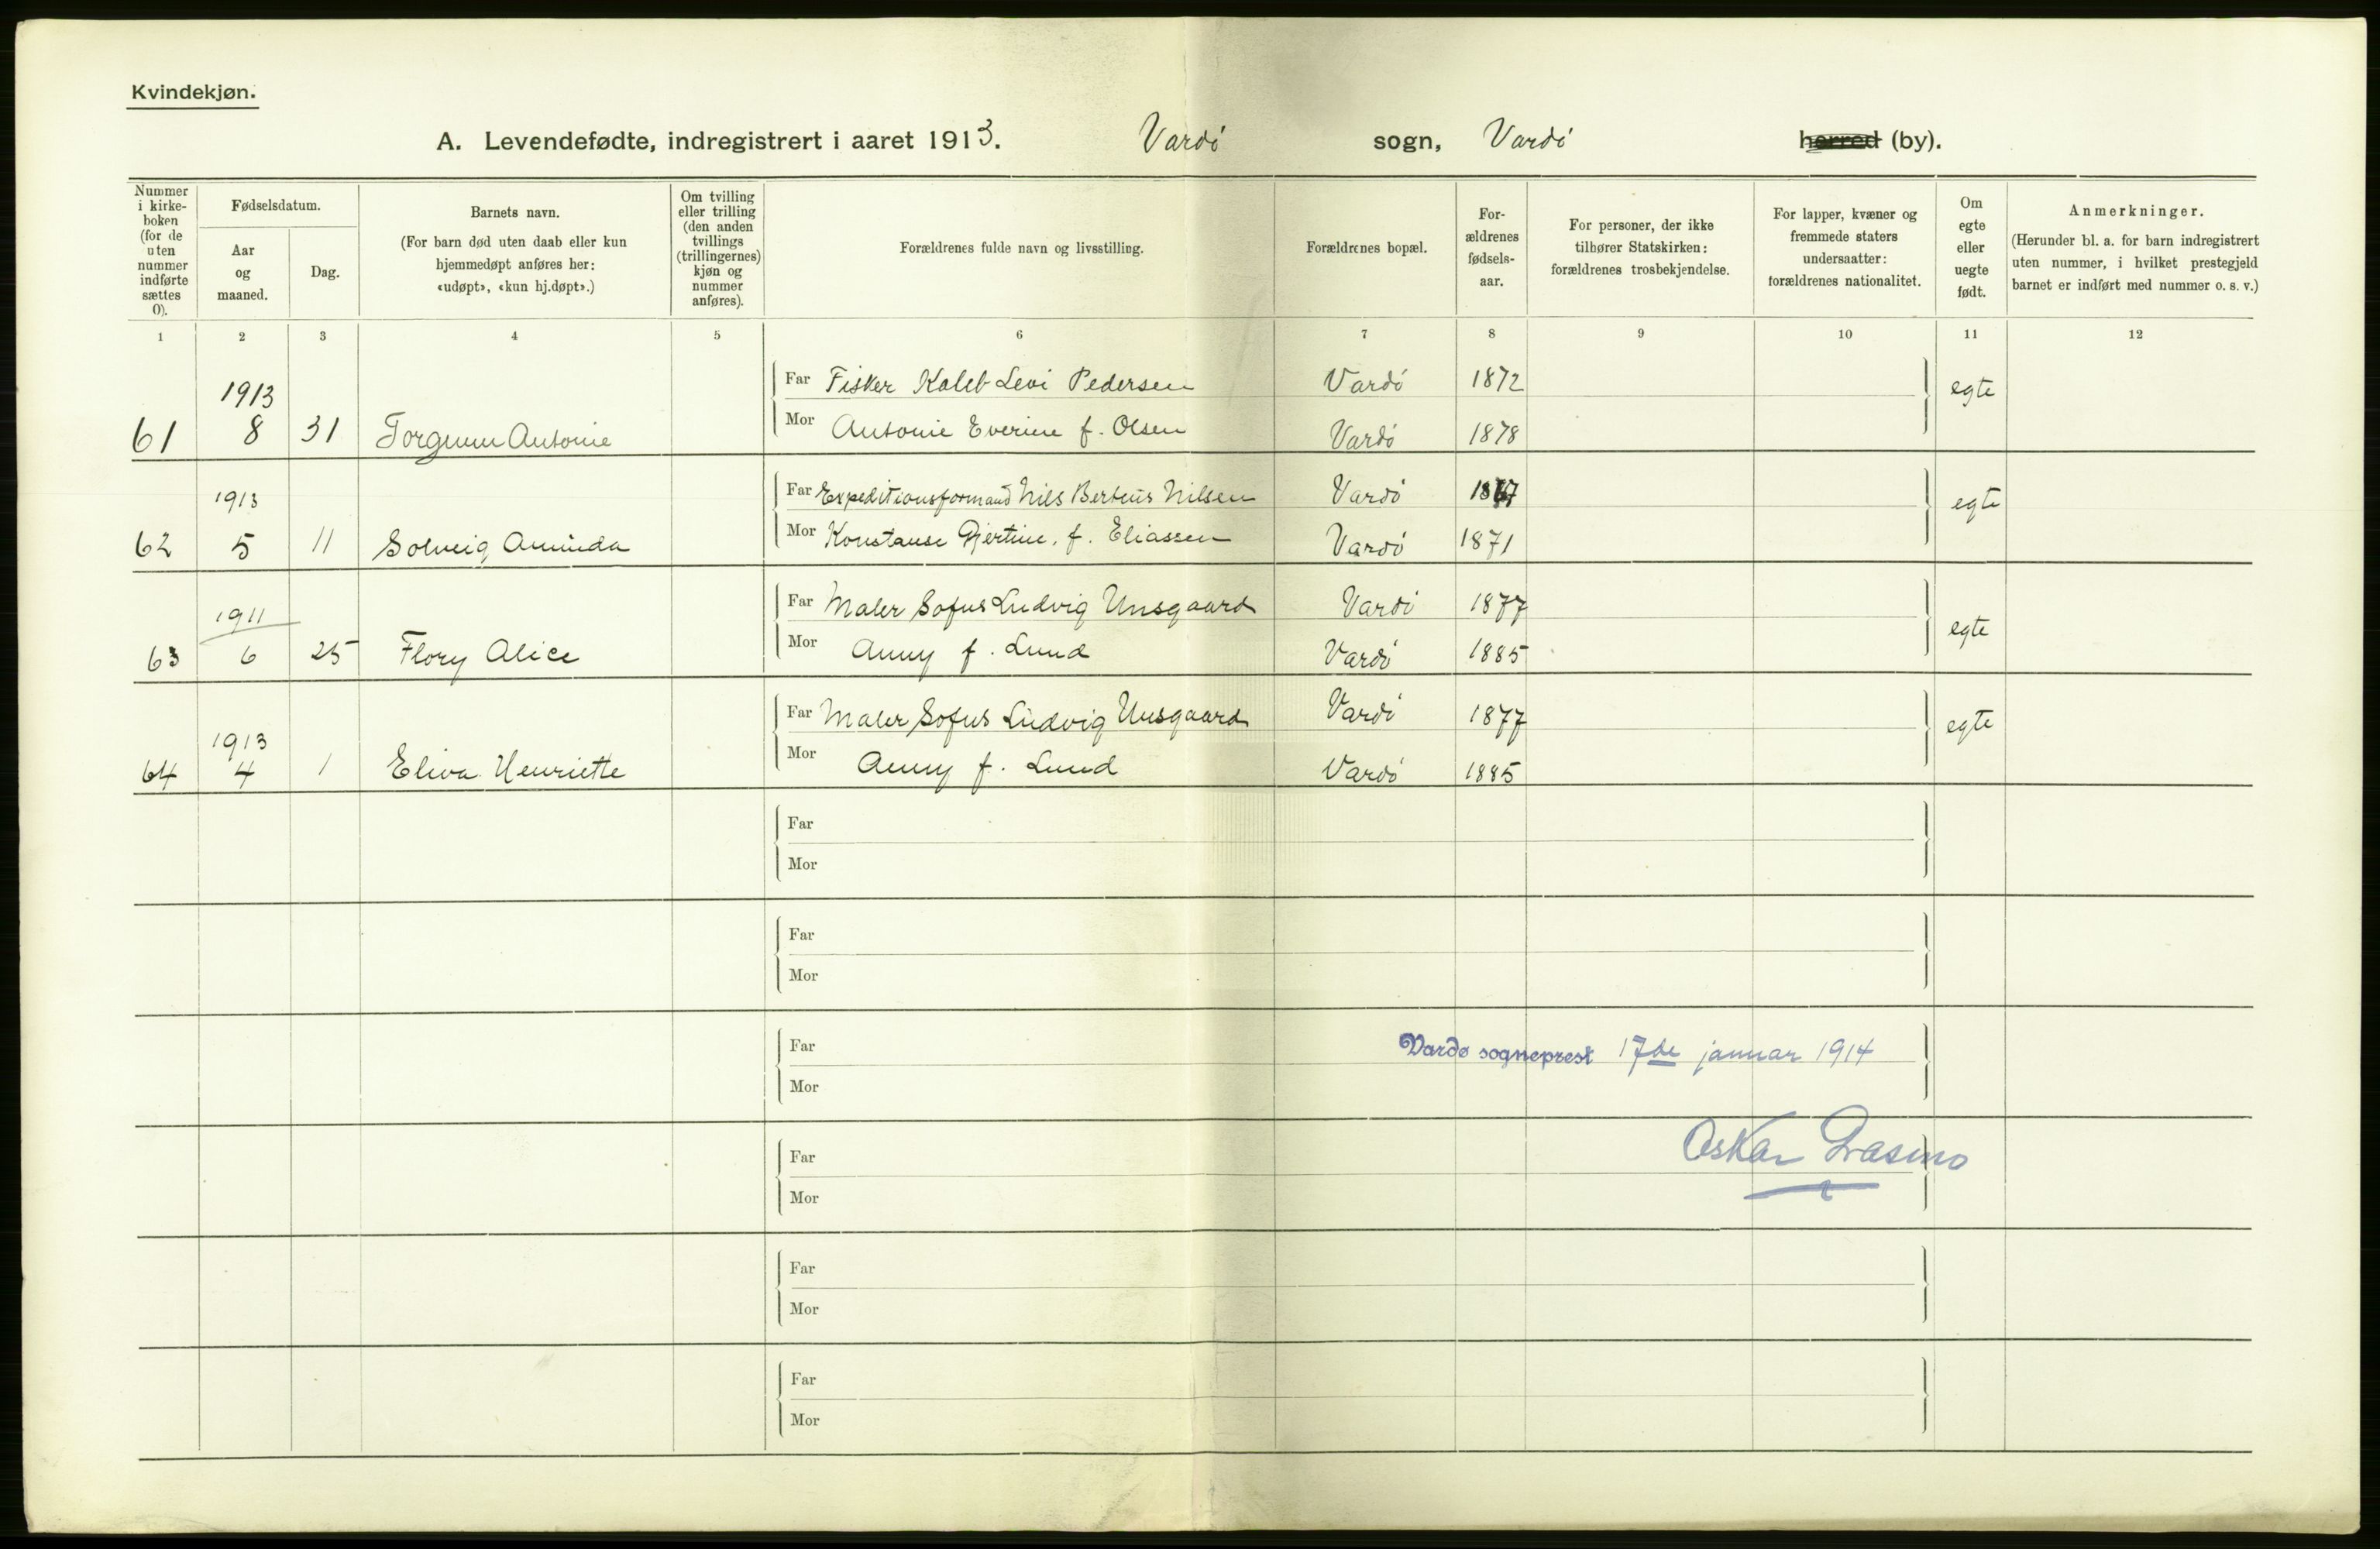 Kvindekjøn.
A. Levendefødte, indregistrert i aaret 1913. Vardö sogn, Vardö herred (by).
Nummer i kirke-boken (for de uten nummer indførte sættes 0).
Fødselsdatum.
Aar og maaned.
Dag.
Barnets navn.
(For barn død uten daab eller kun hjemmedøpt anføres her: «udøpt», «kun hj.døpt».)
Om tvilling eller trilling (den anden tvillings (trillingernes) kjøn og nummer anføres).
Forældrenes fulde navn og livsstilling.
Forældrenes bopæl.
For-ældrenes fødsels-aar.
For personer, der ikke tilhører Statskirken: forældrenes trosbekjendelse.
For lapper, kvæner og fremmede staters undersaatter: forældrenes nationalitet.
Om egte eller uegte født.
Anmerkninger.
(Herunder bl. a. for barn indregistrert uten nummer, i hvilket prestegjeld barnet er indført med nummer o. s. v.)
1 2 3 4 5 6 7 8 9 10 11 12
1913
Far Fisker Kaleb Levi Pedersen Vardö 1872 egte
61 8 31 Torgunn Antonie
Mor Antonie Everine f. Olsen Vardö 1878
1913
Far Expeditionsformand Nils Berteus Nilsen Vardö 1867 egte
62 5 11 Solveig Aminda
Mor Konstanse Gjertine. f. Eliassen Vardö 1871
1911
Far Maler Sofus Ludvig Unsgaard Vardö 1877 egte
63 6 25 Flory Alice
Mor Anny f. Lund Vardö 1885
1913
Far Maler Sofus Ludvig Unsgaard Vardö 1877 egte
64 4 1 Eliva Henriette
Mor Anny f. Lund Vardö 1885
Far
Mor
Far
Mor
Far
Vardø sogneprest 17de januar 1914
Mor
Oskar
Far
Mor
Far
Mor
Far
Mor